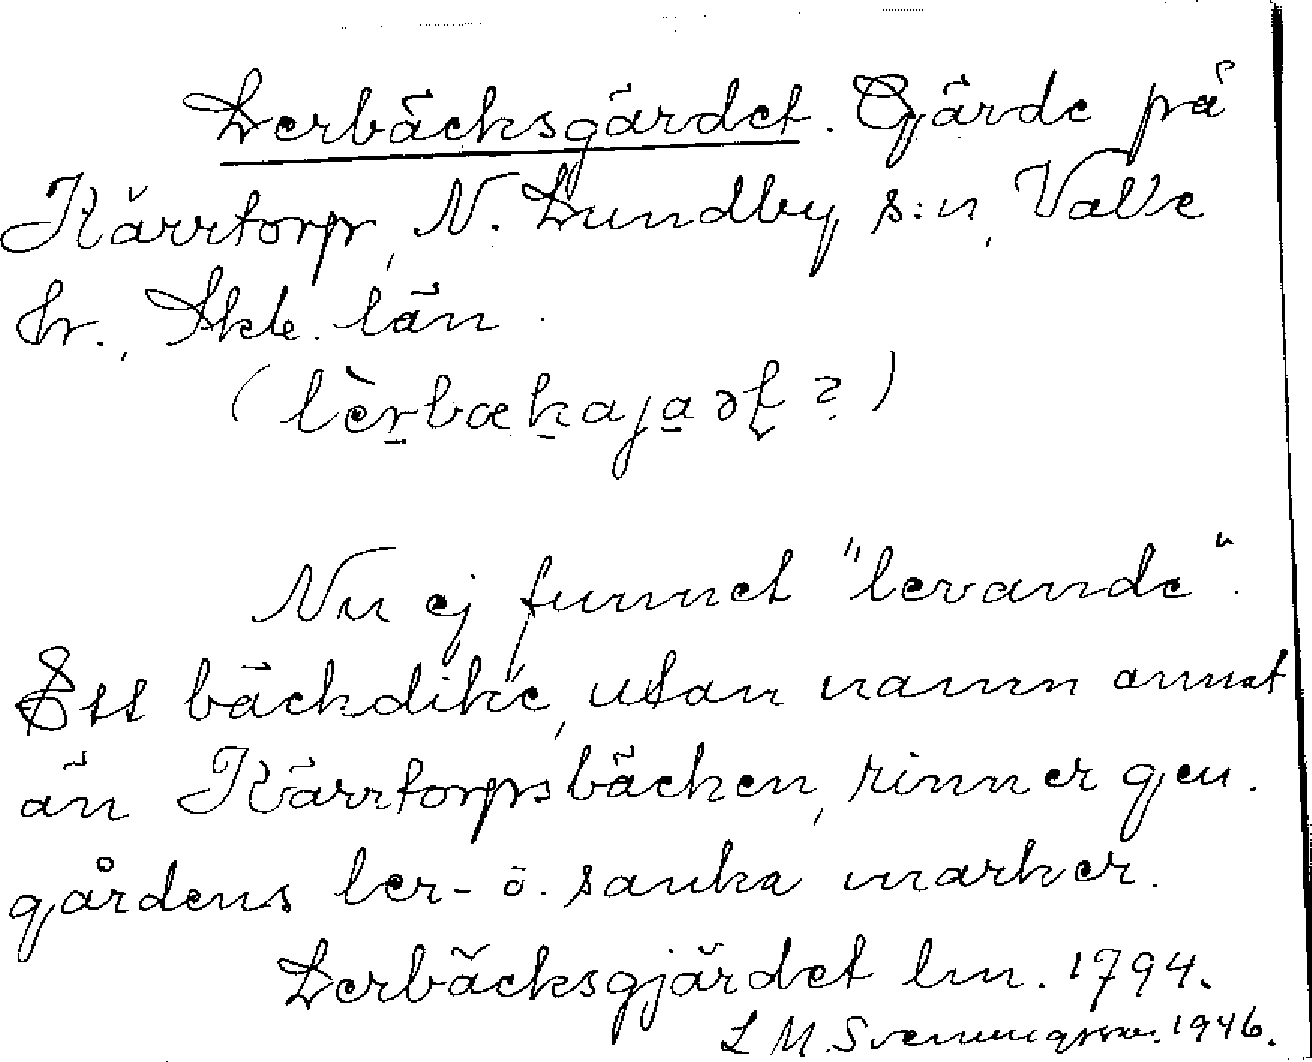 Lerbäcksgärdet. Gärde på
Kärrtorp, N. Lundby s:n, Valle
hr., Skb. län.
(lèrbækajaət?)
Nu ej funnet "levande".
Ett bäckdike, utan namn annat
än Kärrtorpsbäcken, rinner gen.
gårdens ler- o. sanka marker.
Lerbäcksgjärdet lm. 1794.
L M. Svenungsson. 1946.